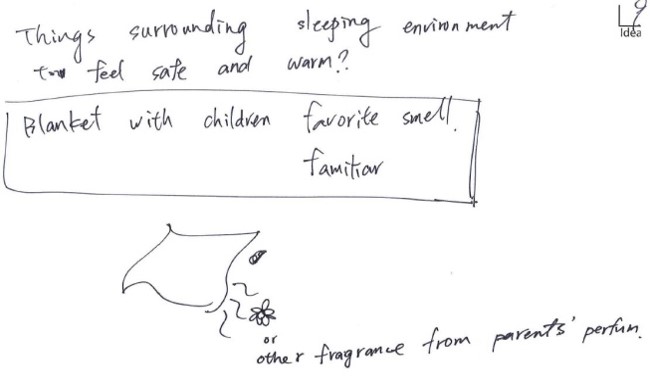 Things surrounding sleeping environment
to feel safe and warm?
Blanket with children favorite smell.
familiar
or
other fragrance from parents' perfum.
9
Idea